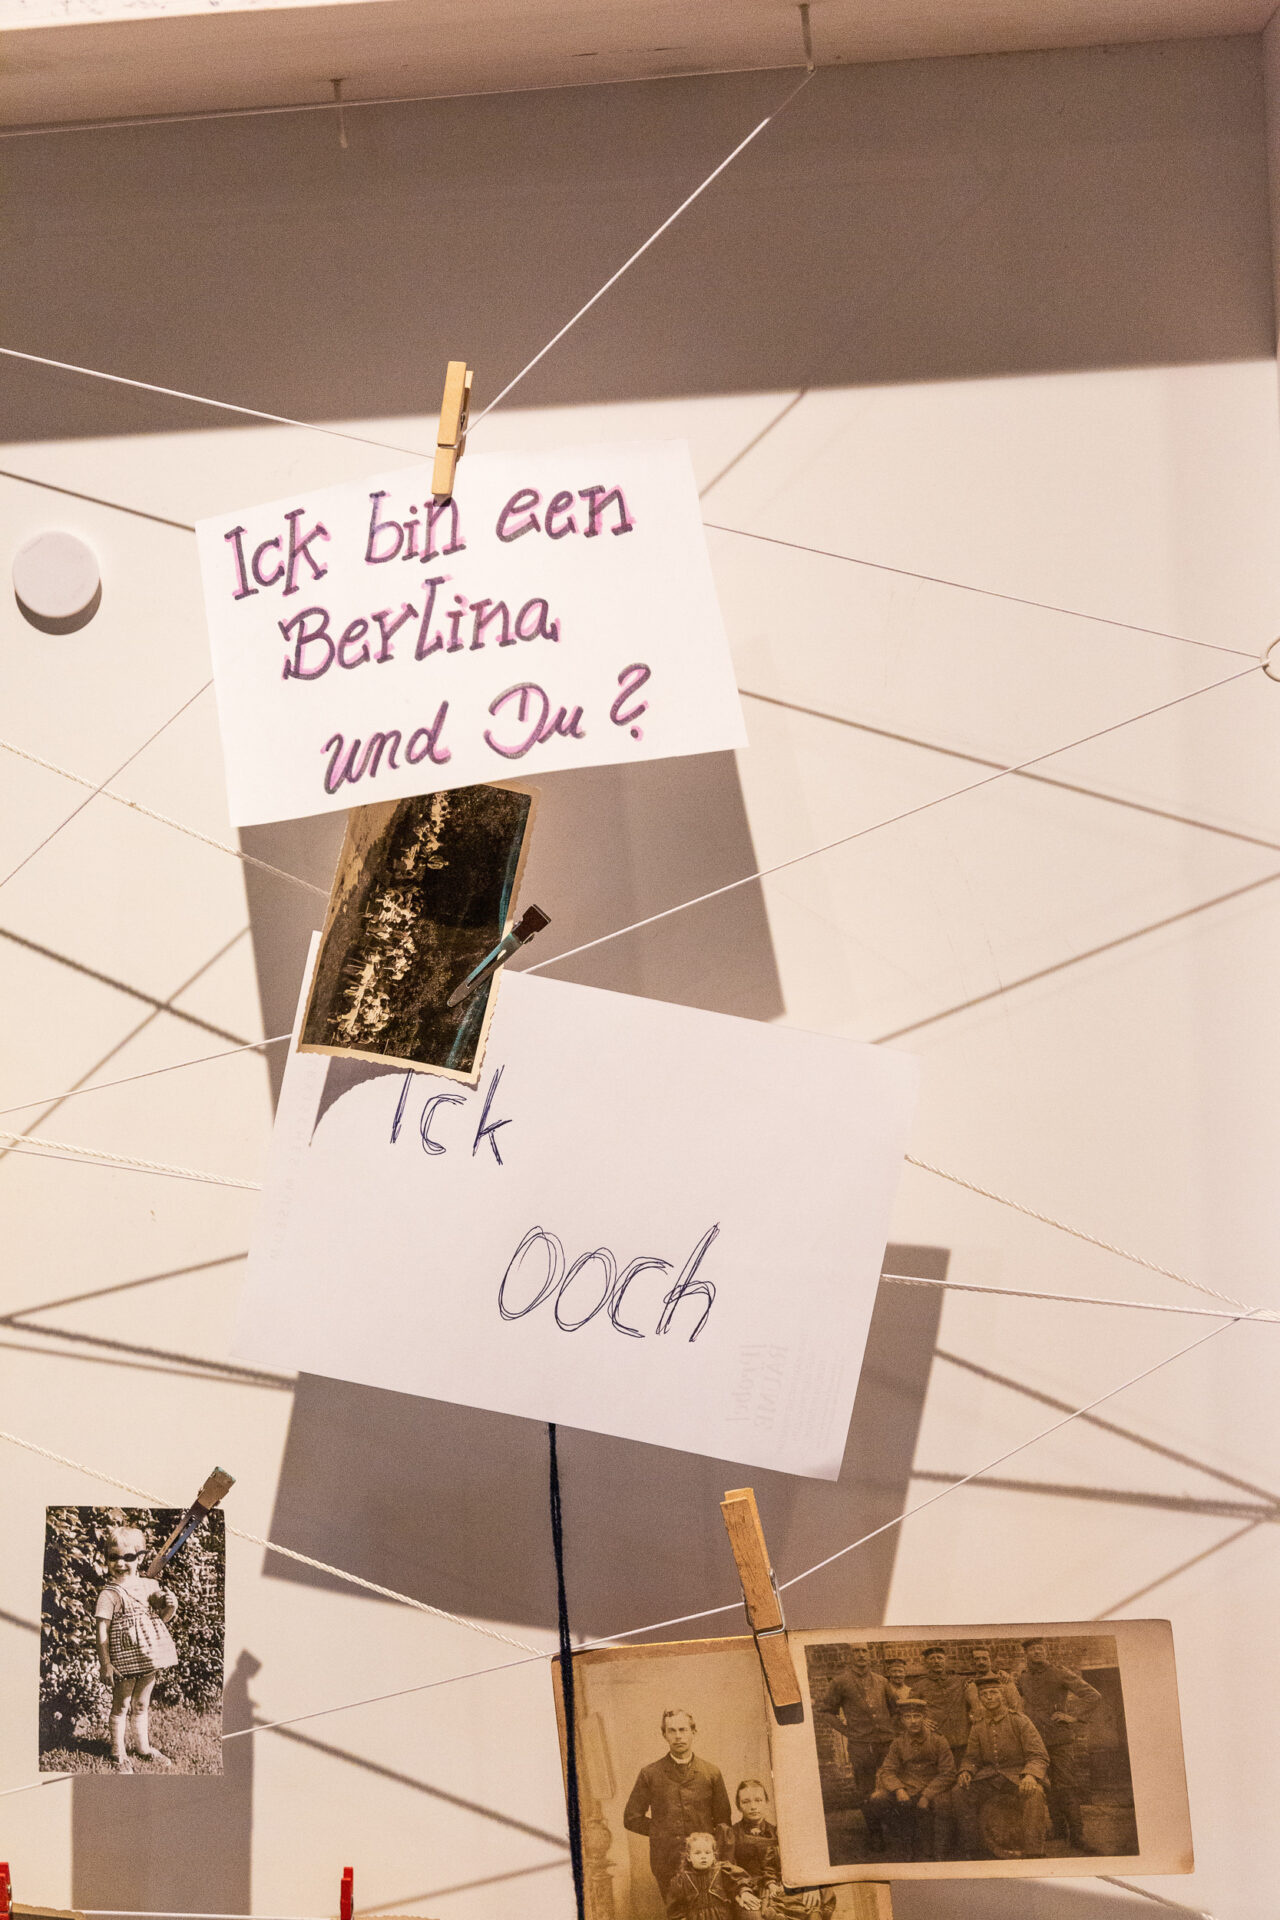 Ick bin een
Berlina
und Du?
Ick
ooch